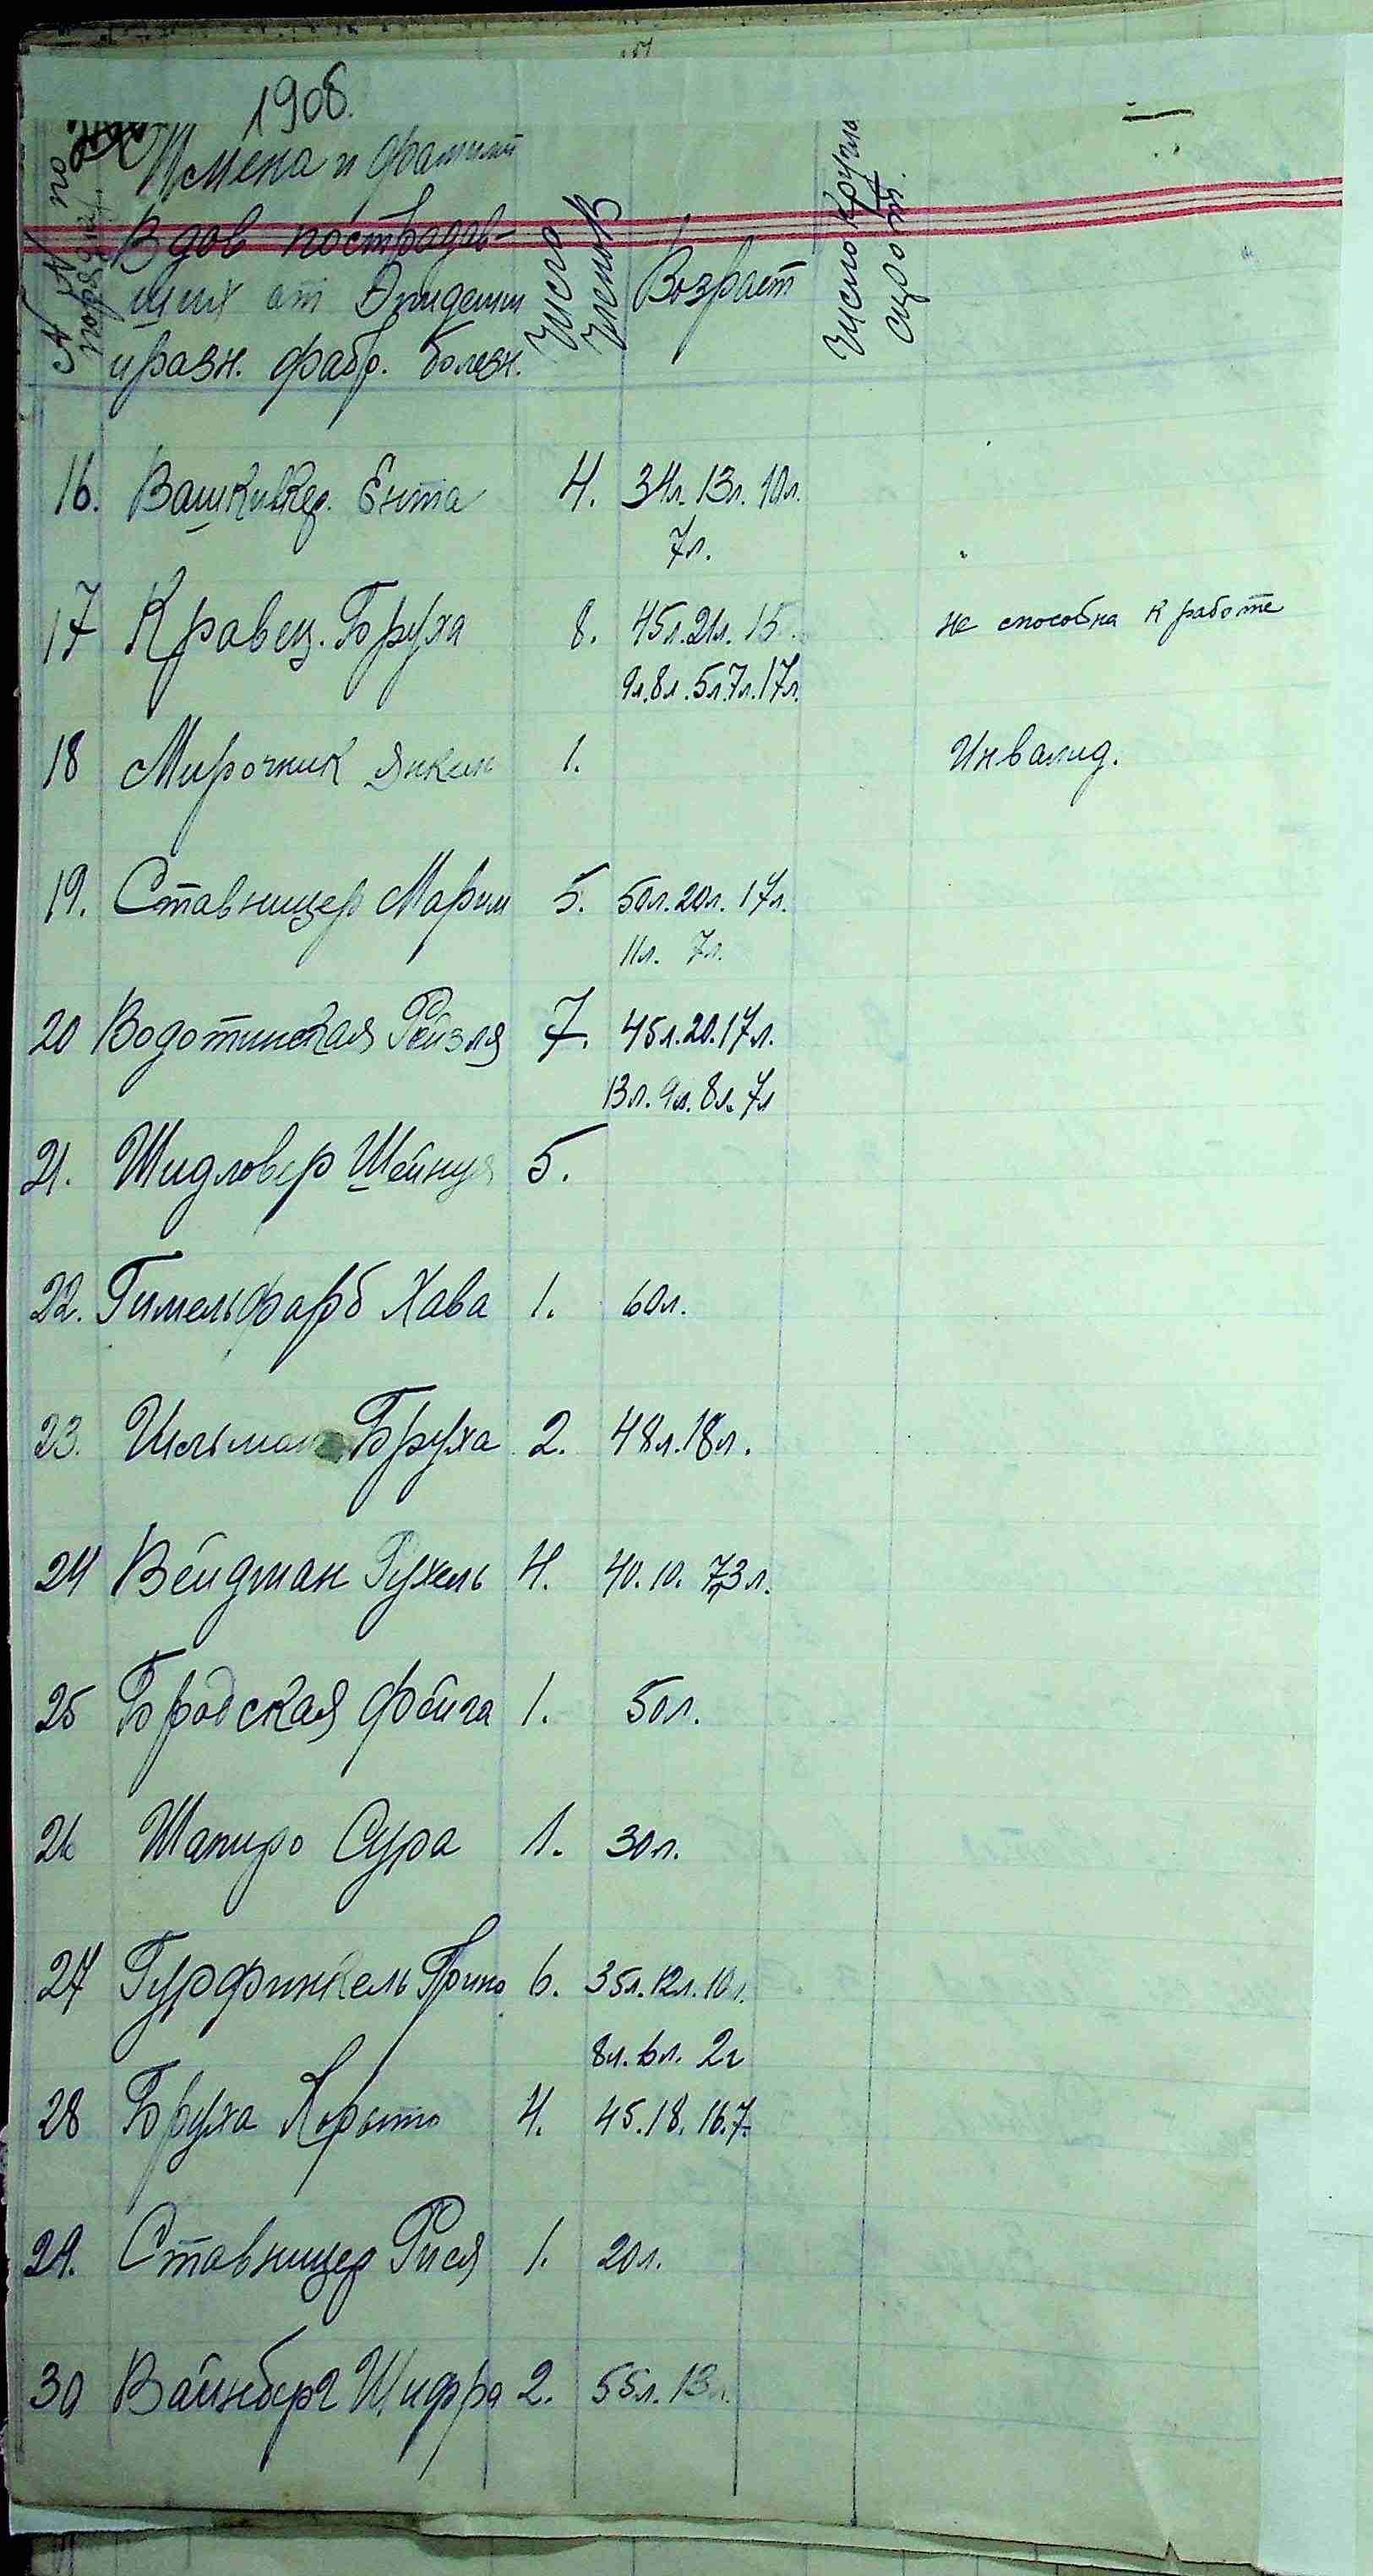 1908.
№№ по поряд.
Имена и фамили
Вдов пострадав-
ших от Эпидемии
и разн. фабр. болезн.
Число членов
Возраст
Число кругл. сирот.
16. Вашкивкер. Ента 4. 34л. 13л. 10л.
7л.
17 Кравец. Бруха 8. 45л. 21л. 15. не способна к работе
9л. 8л. 5л. 7л. 17л.
18 Мирочник Янкин 1. Инвалид.
19. Ставницер Марим 5. 50л. 20л. 17л.
11л. 7л.
20 Водотинская Рейзля 7. 45л. 20. 17л.
13л. 9л. 8л. 7л
21. Шидловер Шейнця 5.
22. Гимельфарб Хава 1. 60л.
23. Бруха 2. 48л. 18л.
24 Вейдман Рухель 4. 40. 10. 7,3л.
25 Бродская Фейга 1. 50л.
26 Шапиро Сура 1. 30л.
27 Гурфинкель 6. 35л. 12л. 10л.
8л. 6л. 2г
28 Бруха 4. 45. 18. 16. 7.
29. Ставницер Рися 1. 20л.
30 Вайнберг Шифра 2. 55л. 13л.